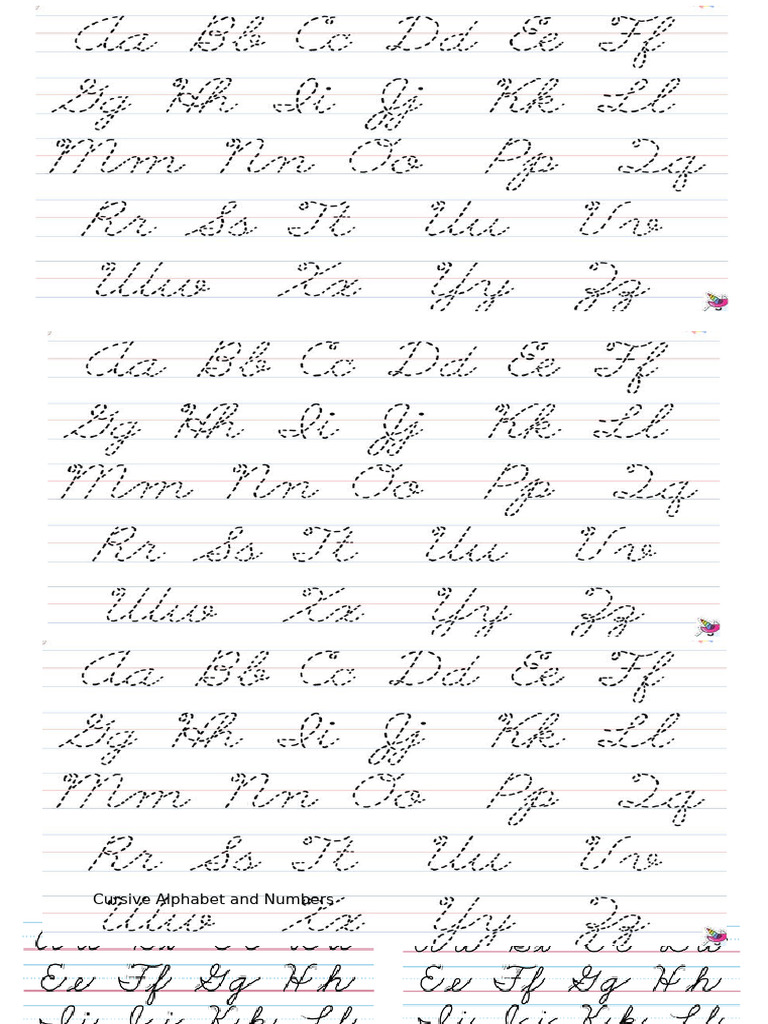 Aa Bb Cc Dd Ee Ff
Gg Hh Ii Jj Kk Ll
Mm Nn Oo Pp Qq
Rr Ss Tt Uu Vv
Ww Xx Yy Zz
Aa Bb Cc Dd Ee Ff
Gg Hh Ii Jj Kk Ll
Mm Nn Oo Pp Qq
Rr Ss Tt Uu Vv
Ww Xx Yy Zz
Aa Bb Cc Dd Ee Ff
Gg Hh Ii Jj Kk Ll
Mm Nn Oo Pp Qq
Rr Ss Tt Uu Vv
Cursive Alphabet and Numbers
Ww Xx Yy Zz
Ee Ff Gg Hh Ee Ff Gg Hh
Ii Jj Kk Ll Ii Jj Kk Ll